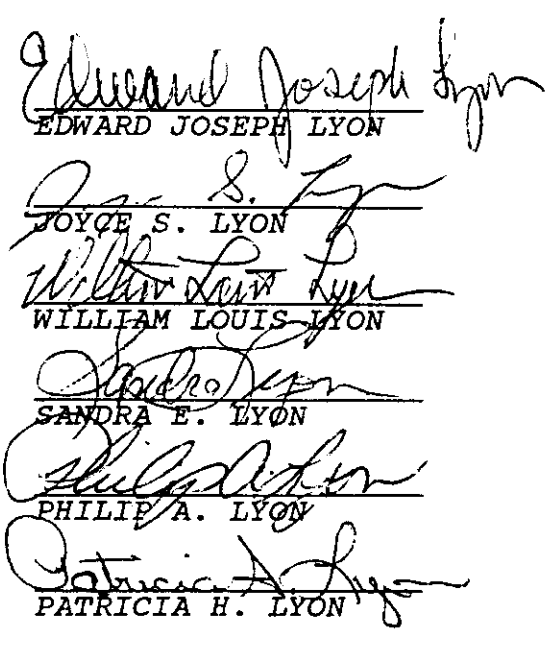 Edward Joseph Lyon
EDWARD JOSEPH LYON
Joyce S. Lyon
JOYCE S. LYON
William Louis Lyon
WILLIAM LOUIS LYON
Sandra Lyon
SANDRA E. LYON
Philip A. Lyon
PHILIP A. LYON
Patricia H. Lyon
PATRICIA H. LYON